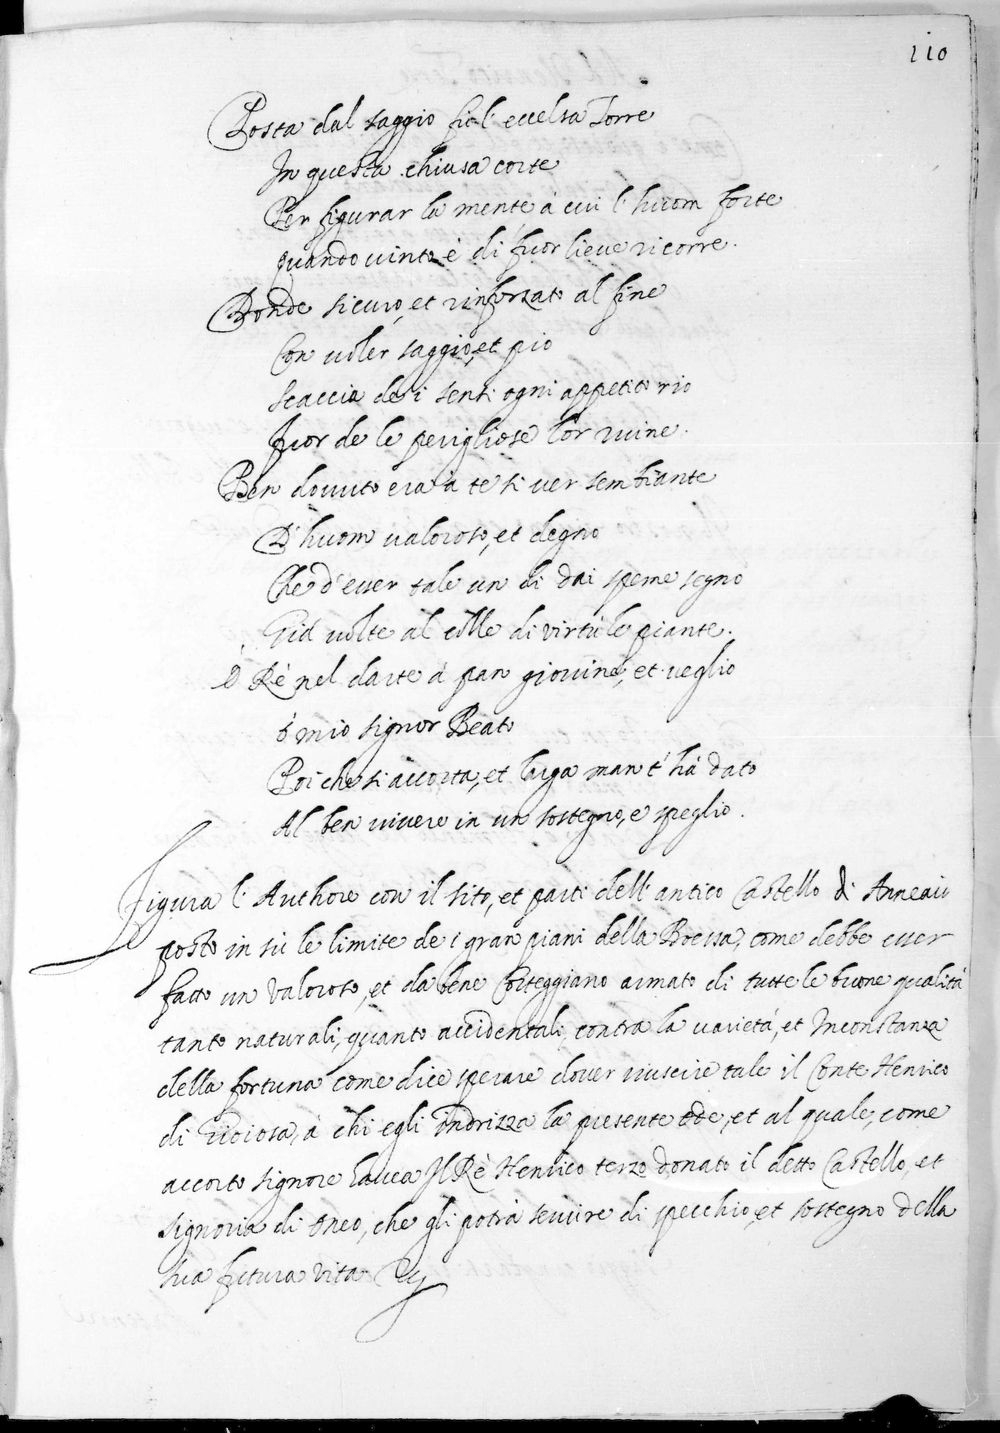 110
Posta dal saggio fù l'eccelsa Torre
In questa chiusa corte
Per figurar la mente à cui l'huom forte
quando vinto è di fuor lieve ricorre.
Donde sicuro, et rinforzato al fine
Con voler saggio, et pio
Scaccia de i sensi ogni appetito rio
fuor de le perigliose lor ruine.
Ben dovuto era à te si ver sembiante
D'huom valoroso, et degno
Che d'esser tale un di dai speme segno
Già volte al colle di virtù le piante.
O Rè nel darte à par giovine, et veglio
ò mio signor Beato
Poi che si accorta, et larga man t'hà dato
Al ben vivere in un sostegno, e speglio.
Figura l'Authore con il sito, et parti dell'antico Castello di
posto in sù le limite de i gran piani della come debbe esser
fatto un Valoroso, et da bene Corteggiano armato di tutte le buone qualità
tanto naturali, quanto accidentali, contra la varietà, et Inconstanza
della fortuna come dice sperare dover riuscire tale il Conte Henrico
di à chi egli indrizza la presente Ode, et al quale, come
accorto signore havea Il Rè Henrico terzo donato il detto Castello, et
signoria di Oneo, che gli potrà servire di specchio, et sostegno della
sua futura vita